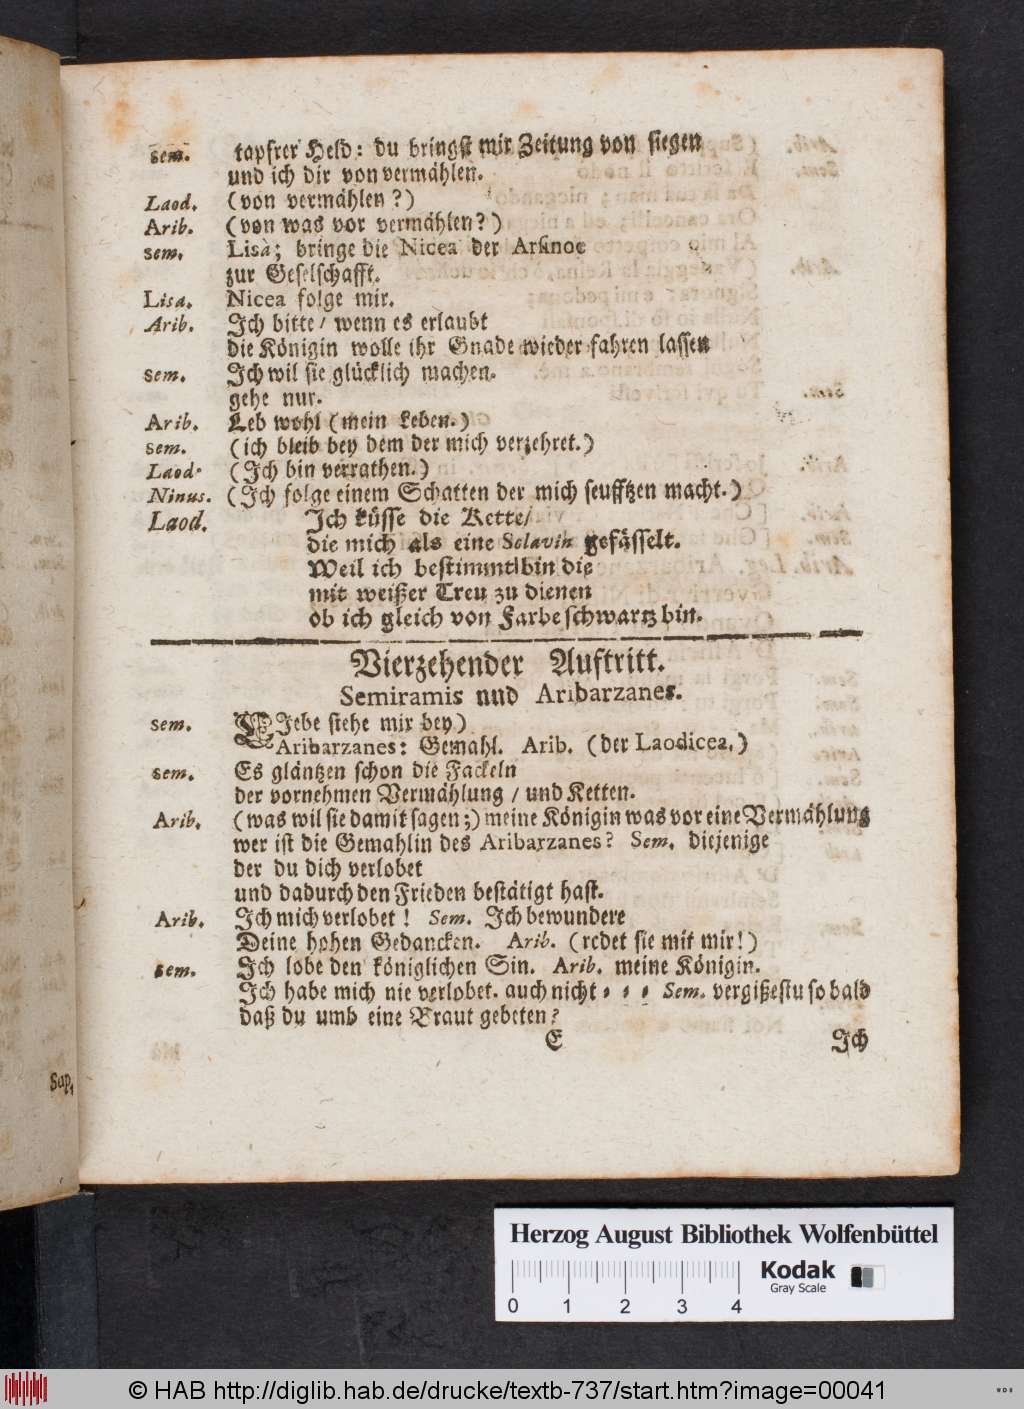 sem. tapfrer Held: du bringst mir Zeitung von siegen
und ich dir von vermählen.
Laod. (von vermählen?)
Arib. (von was vor vermählen?)
sem. Lisà; bringe die Nicea der Arsinoe
zur Geselschafft.
Lisa. Nicea folge mir.
Arib. Ich bitte/ wenn es erlaubt
die Königin wolle ihr Gnade wieder fahren lassen
sem. Ich wil sie glücklich machen.
gehe nur.
Arib. Leb wohl (mein Leben.)
sem. (ich bleib bey dem der mich verzehret.)
Laod. (Ich bin verrathen.)
Ninus. (Ich folge einem Schatten der mich seufftzen macht.)
Laod. Ich küsse die Kette/
die mich als eine Sclavin gefässelt.
Weil ich bestimmt bin die
mit weißer Treu zu dienen
ob ich gleich von Farbe schwartz bin.
Vierzehender Auftritt.
Semiramis und Aribarzanes.
sem. LIebe stehe mir bey)
Aribarzanes: Gemahl. Arib. (der Laodicea.)
sem. Es gläntzen schon die Fackeln
der vornehmen Vermählung / und Ketten.
Arib. (was wil sie damit sagen;) meine Königin was vor eine Vermählung
wer ist die Gemahlin des Aribarzanes? Sem. diejenige
der du dich verlobet
und dadurch den Frieden bestätigt hast.
Arib. Ich mich verlobet! Sem. Ich bewundere
Deine hohen Gedancken. Arib. (redet sie mit mir!)
sem. Ich lobe den königlichen Sin. Arib. meine Königin.
Ich habe mich nie verlobet. auch nicht = = = Sem. vergißestu so bald
daß du umb eine Braut gebeten?
E Ich
Sap.
Herzog August Bibliothek Wolfenbüttel
Kodak
Gray Scale
0 1 2 3 4
© HAB http://diglib.hab.de/drucke/textb-737/start.htm?image=00041